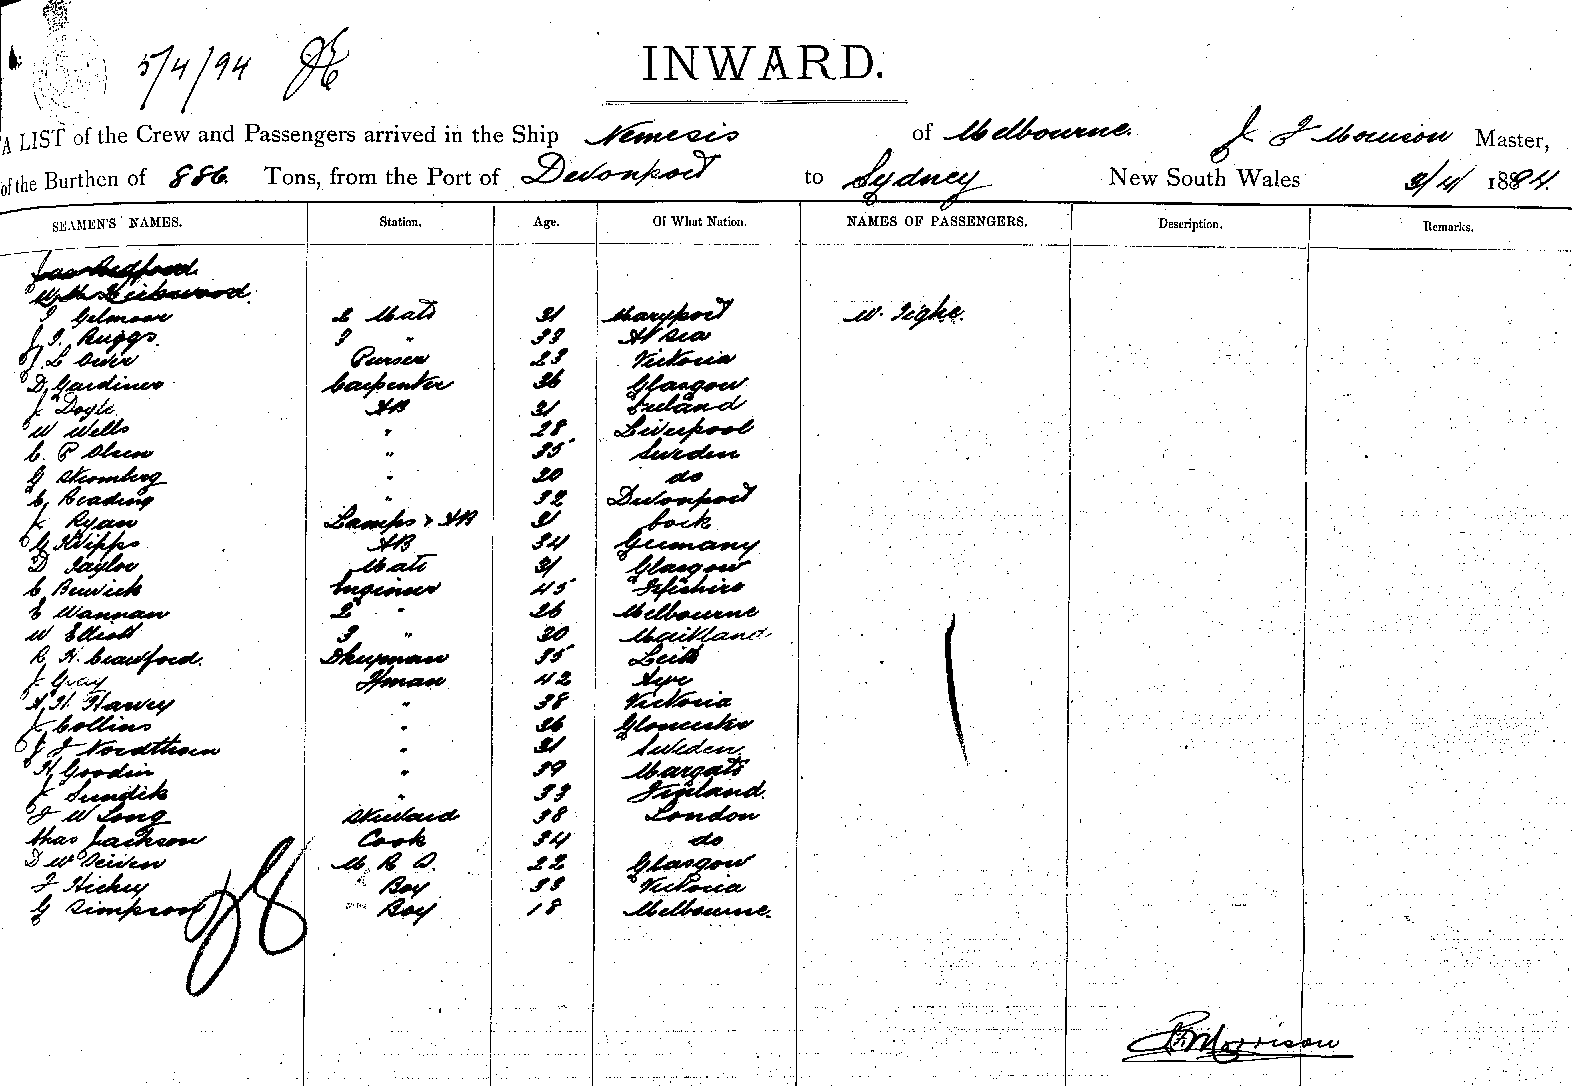 5/4/94
INWARD.
A LIST of the Crew and Passengers arrived in the Ship Nemesis of Melbourne. Morrison Master,
of the Burthen of 886 Tons, from the Port of Devonport to Sydney New South Wales 3/4/ 1894.
SEAMEN'S NAMES. Station. Age. Of What Nation. NAMES OF PASSENGERS. Description. Remarks.
Jas Redford.
Wm Kirkwood.
Gilmour 2 Mate 31 Maryport W. Tighe.
Ruggs. 3 " 33 At Sea
Purser 23 Victoria
D Gardiner Carpenter 36 Glasgow
J Doyle AB 31 Ireland
W Wells " 28 Liverpool
C. P Olsen " 35 Sweden
G Stromberg " 30 do
C Reading " 32 Devonport
J Ryan Lamps & AB 31 Cork
G Kripps AB 34 Germany
D Taylor Mate 31 Glasgow
C Berwick Engineer 45 Fifeshire
E Wannan 2 " 26 Melbourne
W Elliott 3 " 30 Maitland
R H. Crawford. Dkeyman 35 Leith
J Gray Fman 42 Ayr
A H. Harvey " 38 Victoria
J Collins " 36 Gloucester
J J Nordthsen " 31 Sweden
H Goodin " 39 Margate
J Sundik " 33 Finland.
J W Long Steward 38 London
Thas Jackson Cook 34 do
D W Deiven M R S. 22 Glasgow
J Hickey Boy 33 Victoria
G Simpson Boy 18 Melbourne.
Morrison